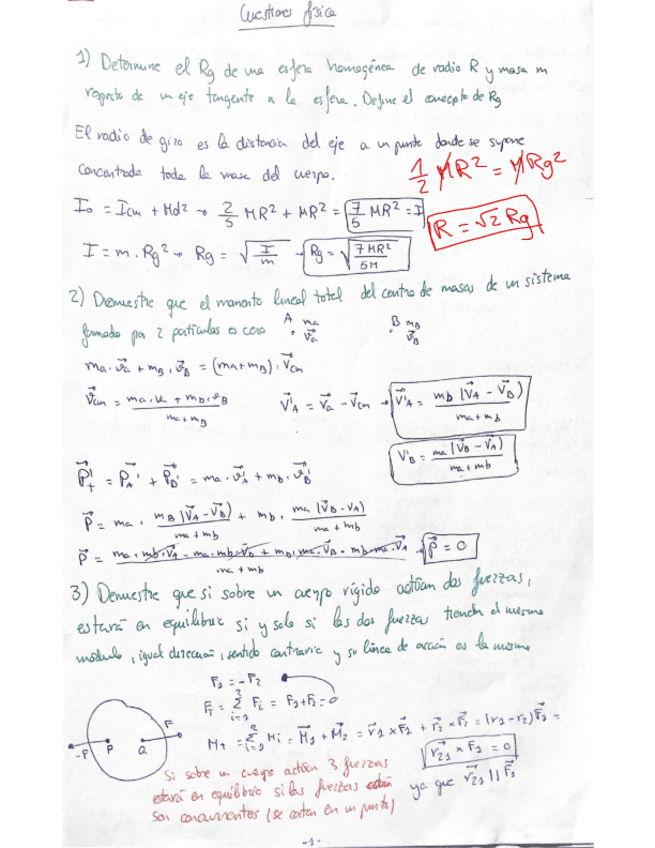 Cuestiones física
1) Determine el Rg de una esfera homogénea de radio R y masa m
respecto de un eje tangente a la esfera. Define el concepto de Rg
El radio de giro es la distancia del eje a un punto donde se supone
concentrada toda la masa del cuerpo.
1/2 MR² = MRg²
I₀ = Icm + Md² → 2/5 MR² + MR² = 7/5 MR² = I
R = √2 Rg
I = m · Rg² → Rg = √(I/m) → Rg = √(7MR²/5M)
2) Demuestre que el momento lineal total del centro de masas de un sistema
formado por 2 partículas es cero
A ma
v⃗a
B mB
v⃗B
ma · v⃗a + mB · v⃗B = (ma+mB) · v⃗cm
v⃗cm = (ma · va + mB · vB)/(ma+mB)
v⃗'A = v⃗a - v⃗cm → v⃗'A = mb (v⃗A - v⃗B)/(ma+mb)
v'B = ma (v⃗B - v⃗A)/(ma+mb)
P⃗'T = P⃗A' + P⃗B' = ma · v⃗A' + mb · v⃗B'
P⃗ = ma · mB (v⃗A - v⃗B)/(ma+mb) + mb · ma (v⃗B - vA)/(ma+mb)
P⃗ = (ma · mb · v⃗A - ma · mb · v⃗B + mb · ma · v⃗B - mb · ma · v⃗A)/(ma+mb) → P⃗ = 0
3) Demuestre que si sobre un cuerpo rígido actúan dos fuerzas,
estará en equilibrio si y solo si las dos fuerzas tienen el mismo
módulo, igual dirección, sentido contrario y su línea de acción es la misma
F₁ = -F₂
FT = Σ Fi = F₁+F₂ = 0
MT = Σ Mi = M⃗₁ + M⃗₂ = r⃗₁ × F⃗₁ + r⃗₂ × F⃗₂ = (r₁ - r₂) F⃗₁ =
-F P Q F
r⃗₂₁ × F₁ = 0
ya que r⃗₂₁ || F⃗₁
Si sobre un cuerpo actúan 3 fuerzas
estará en equilibrio si las fuerzas
son concurrentes (se cortan en un punto)
-1-